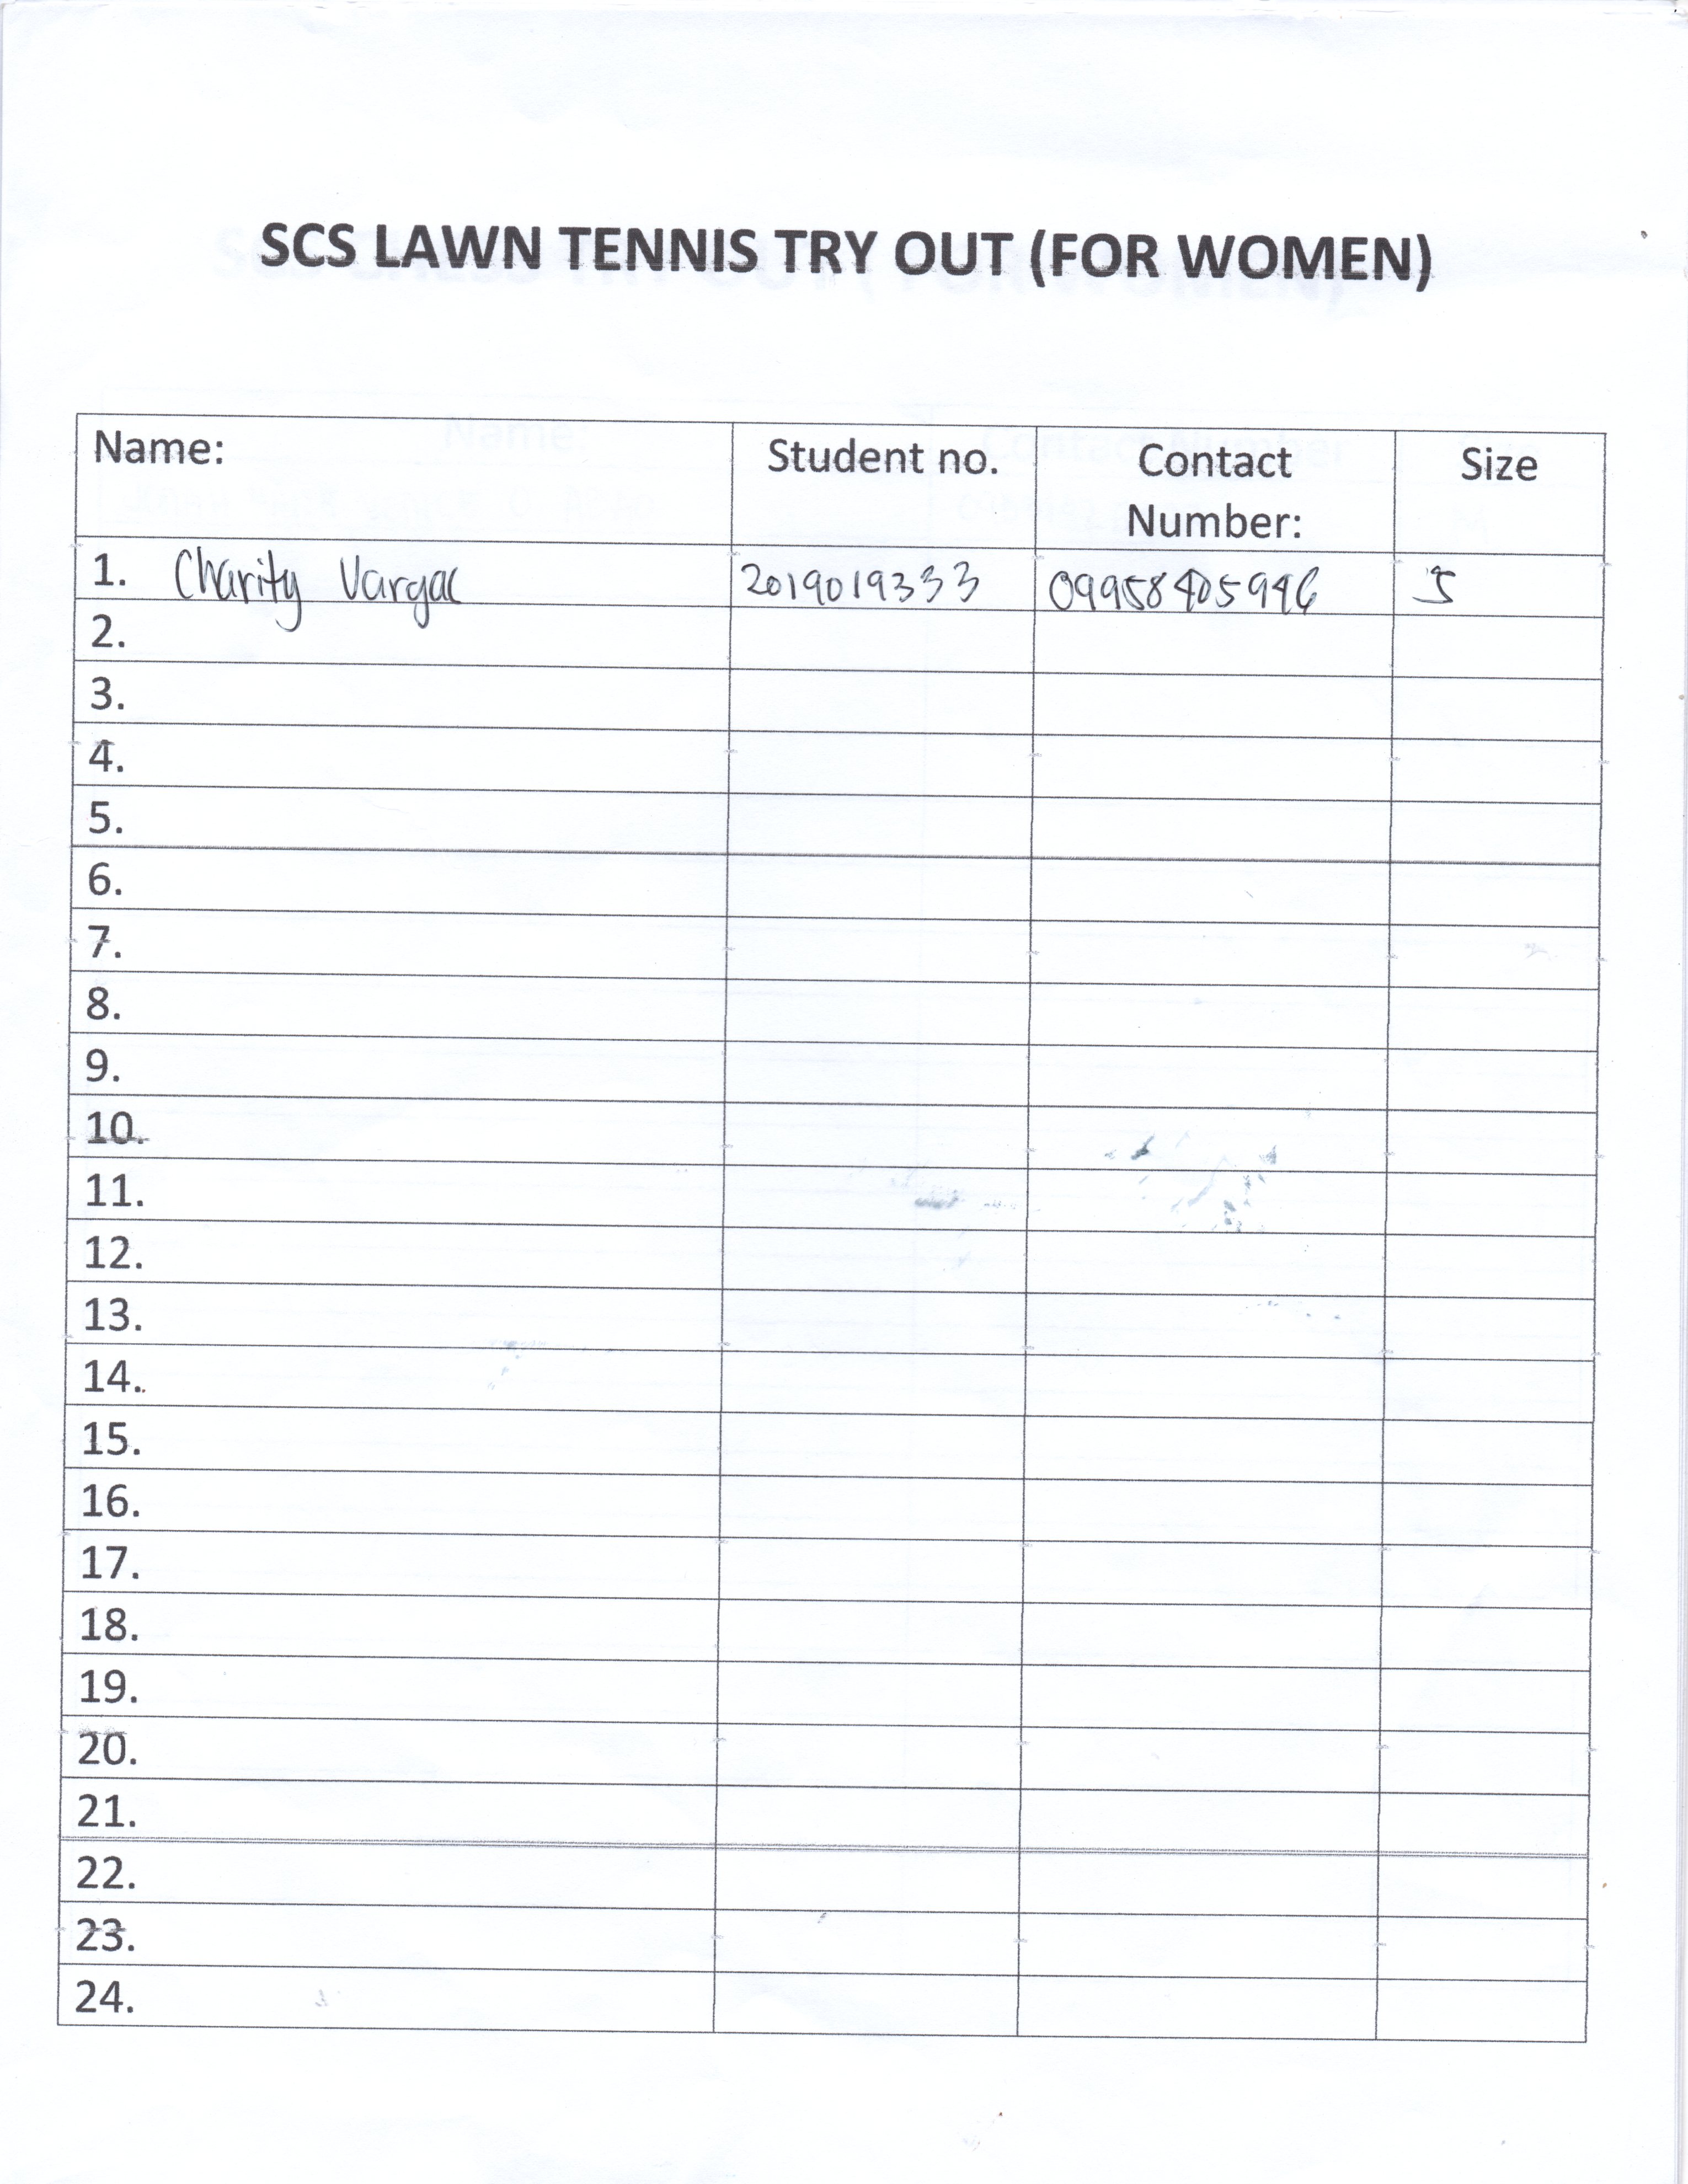 SCS LAWN TENNIS TRY OUT (FOR WOMEN)
Name: Student no. Contact Number: Size
1. Charity Vargas 2019019333 S
2.
3.
4.
5.
6.
7.
8.
9.
10.
11.
12.
13.
14.
15.
16.
17.
18.
19.
20.
21.
22.
23.
24.